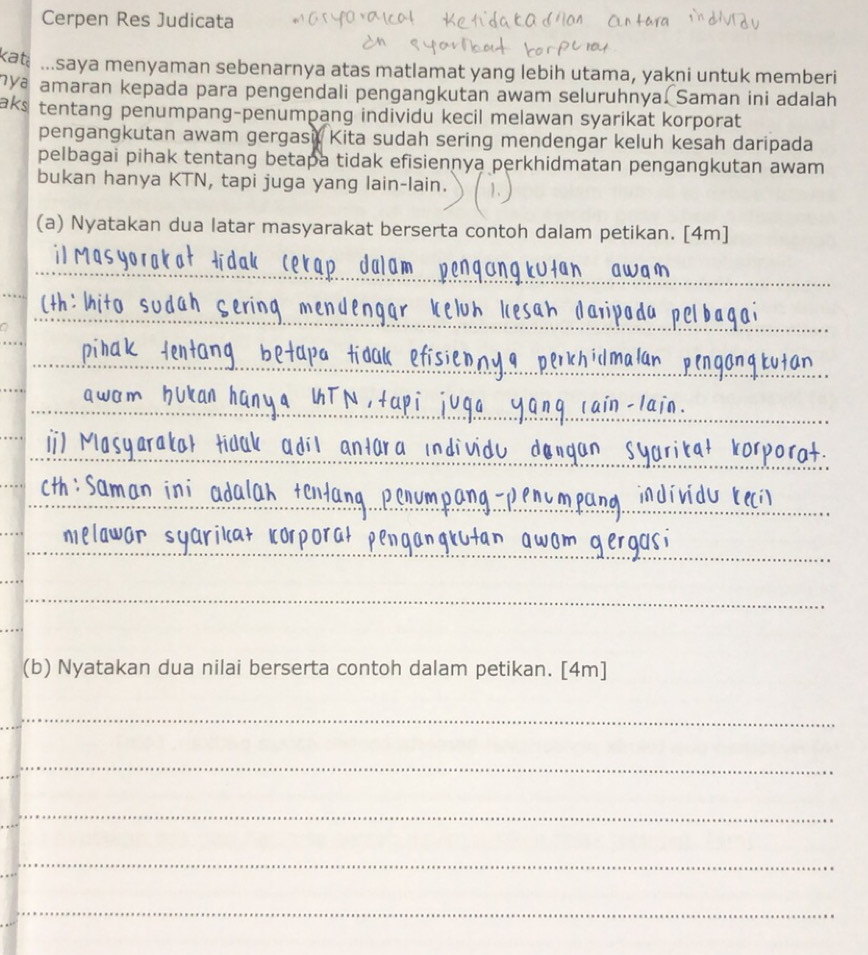 Cerpen Res Judicata
masyarakat ketidakadilan antara individu
dn syarikat korporat
kata
nya
aks
...saya menyaman sebenarnya atas matlamat yang lebih utama, yakni untuk memberi
amaran kepada para pengendali pengangkutan awam seluruhnya. (Saman ini adalah
tentang penumpang-penumpang individu kecil melawan syarikat korporat
pengangkutan awam gergasi.) Kita sudah sering mendengar keluh kesah daripada
pelbagai pihak tentang betapa tidak efisiennya perkhidmatan pengangkutan awam
bukan hanya KTN, tapi juga yang lain-lain. ) (1.)
(a) Nyatakan dua latar masyarakat berserta contoh dalam petikan. [4m]
i) Masyarakat tidak cekap dalam pengangkutan awam
Cth: kita sudah sering mendengar keluh kesah daripada pelbagai
pihak tentang betapa tidak efisiennya perkhidmatan pengangkutan
awam bukan hanya KTN, tapi juga yang lain-lain.
ii) Masyarakat tidak adil antara individu dengan syarikat korporat.
cth: Saman ini adalah tentang penumpang-penumpang individu kecil
melawar syarikat korporat pengangkutan awam gergasi
(b) Nyatakan dua nilai berserta contoh dalam petikan. [4m]